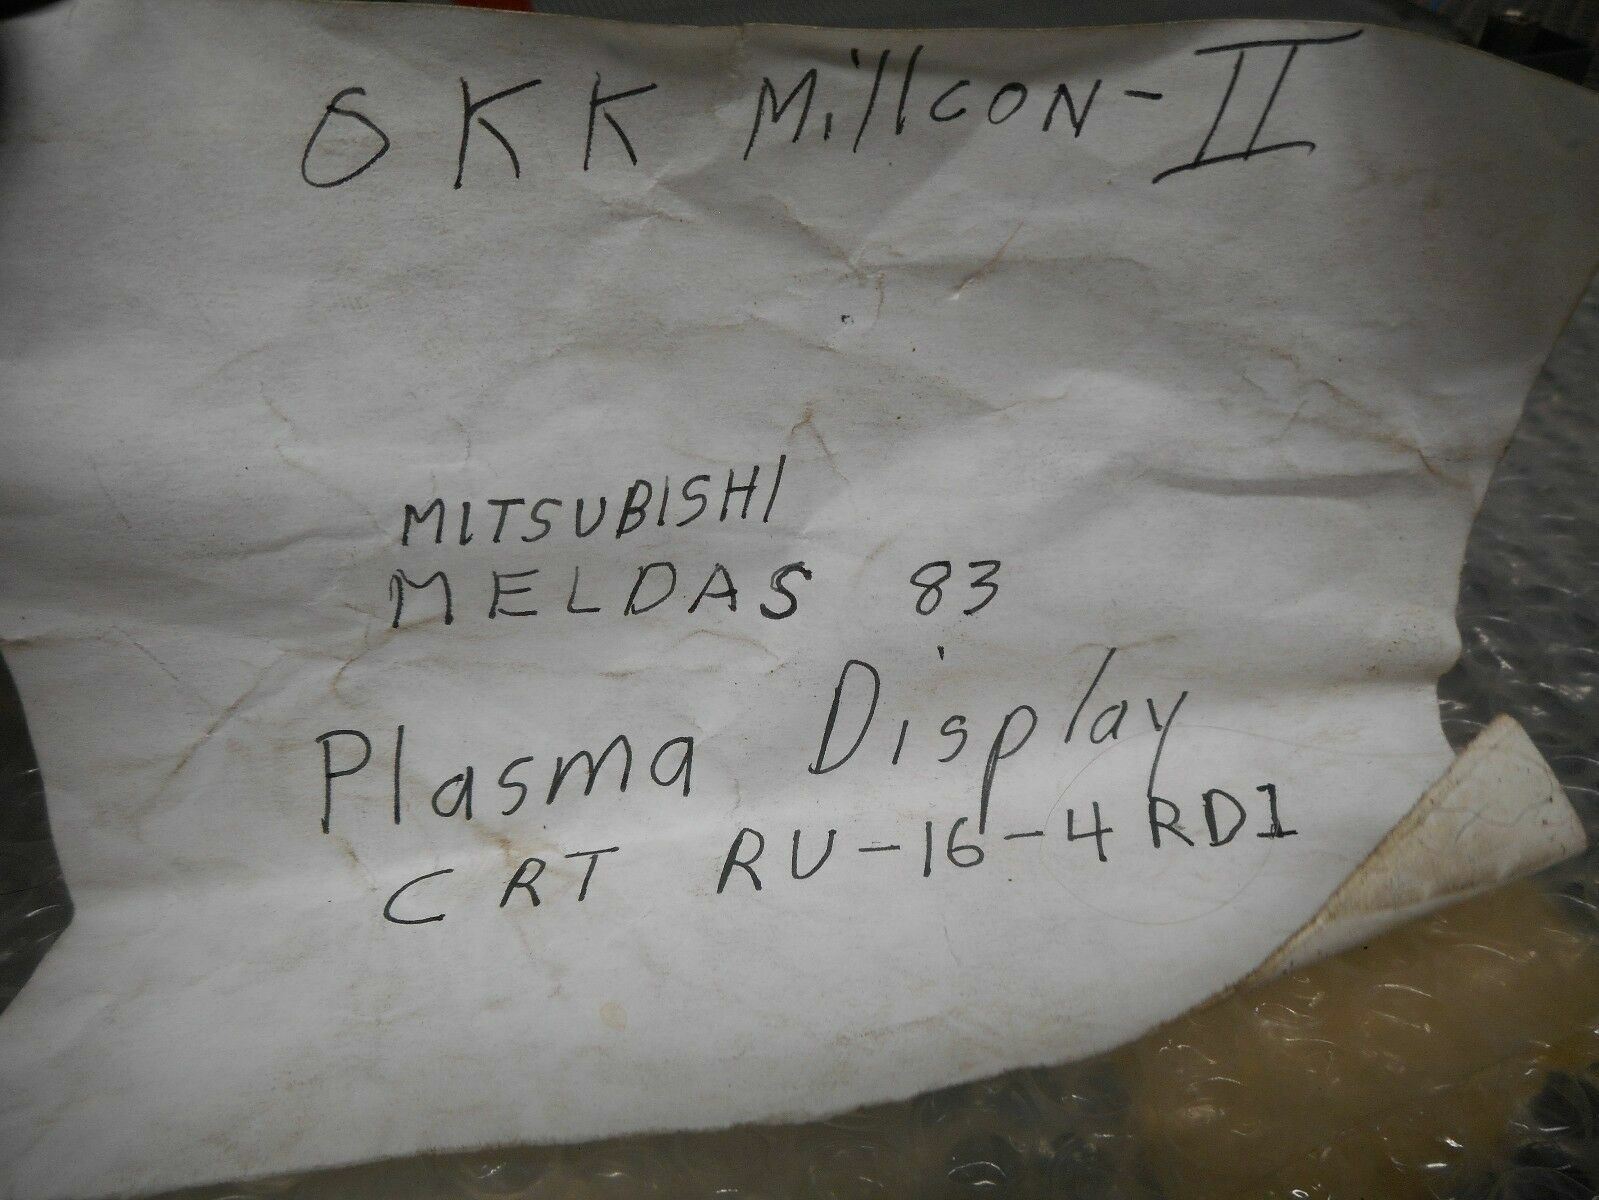 OKK Millcon-II
MITSUBISHI
MELDAS 83
Plasma Display
CRT RU-16-4RD1